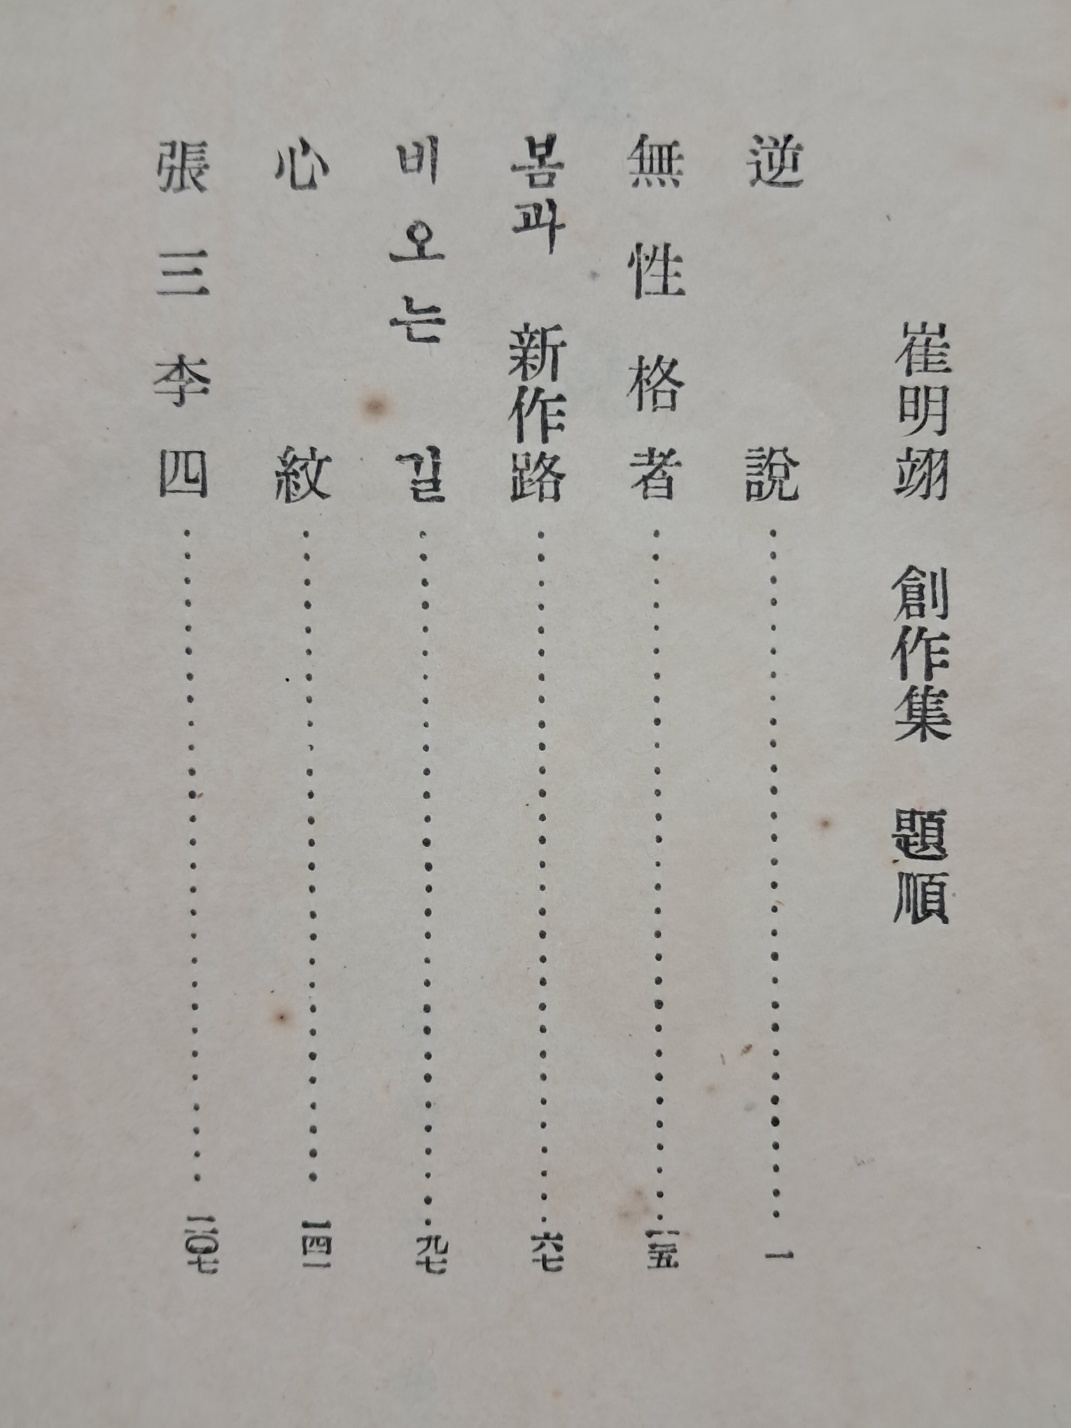 崔明翊 創作集 題順
逆說……二
無性格者……二五
봄과 新作路……六七
비오는 길……九七
心紋……一四一
張三李四……二〇七